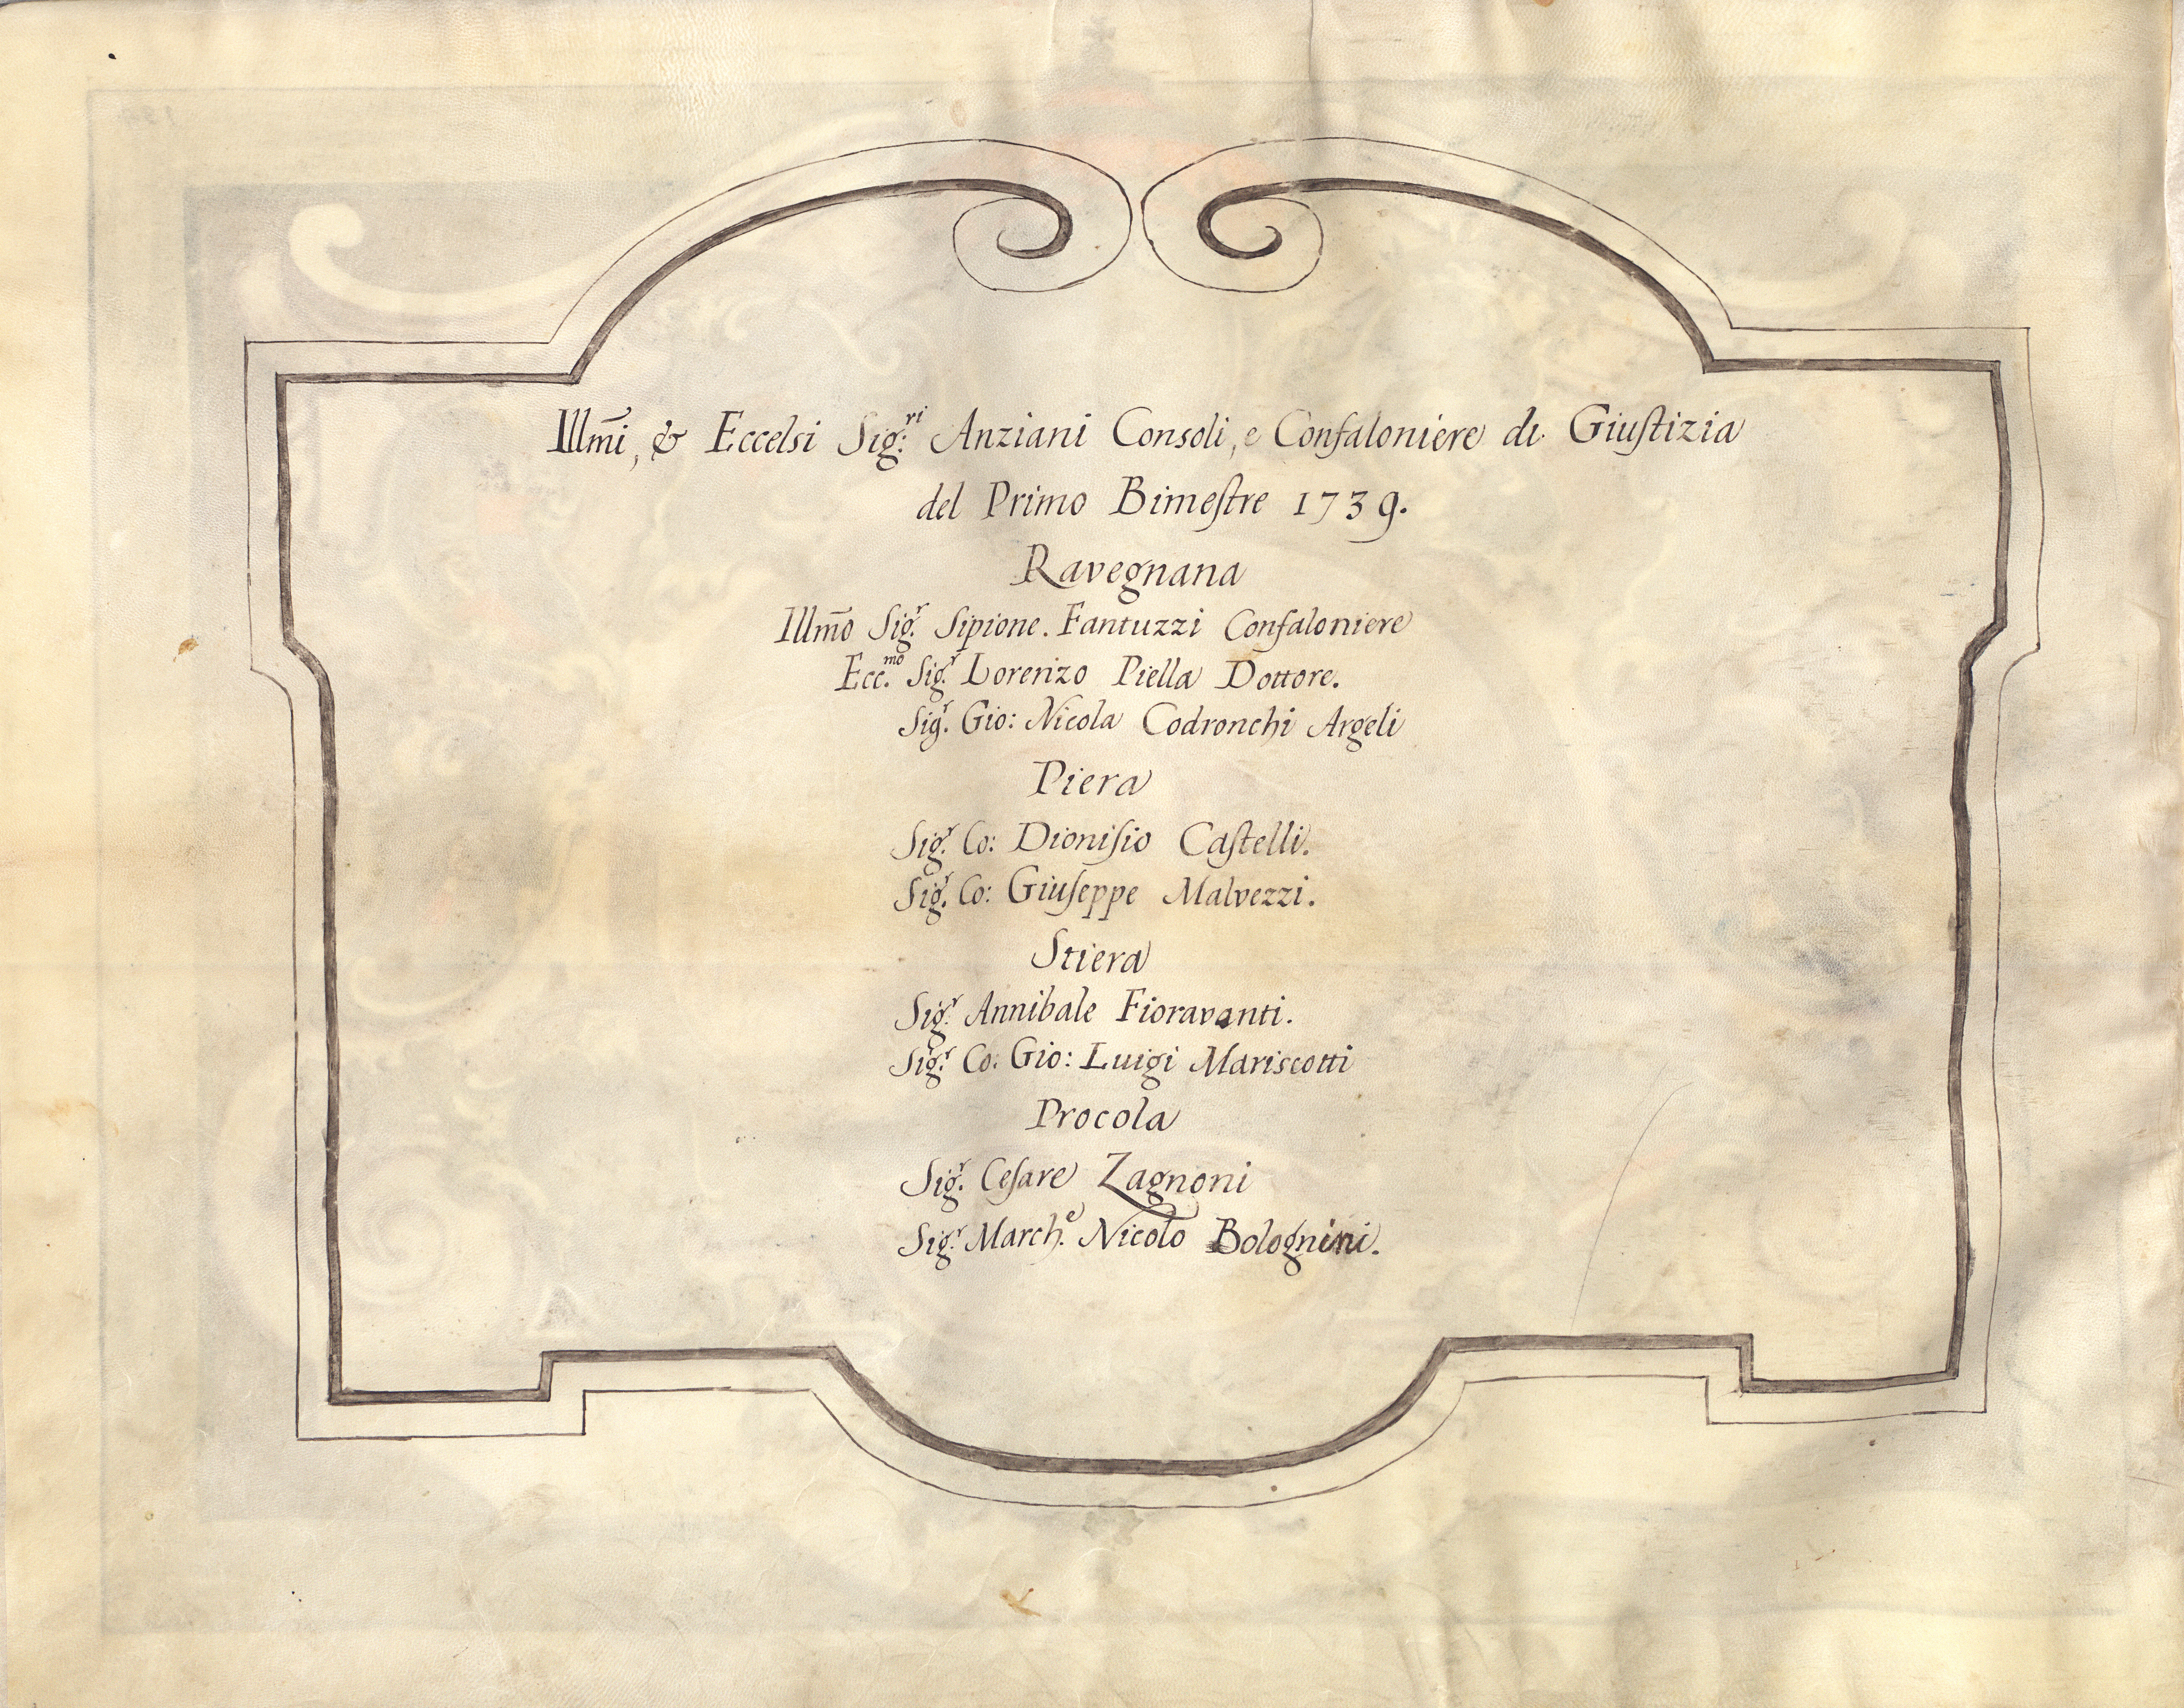 Illm̃i, & Eccelsi Sig:ri Anziani Consoli, e Confaloniere di Giuſtizia
del Primo Bimeſtre 1739.
Ravegnana
Illm̃o Sig.r Sipione. Fantuzzi Confaloniere
Ecc.mo Sig.r Lorenzo Piella Dottore.
Sig.r Gio: Nicola Codronchi Argeli
Piera
Sig.r Co: Dioniſio Caſtelli.
Sig.r Co: Giuſeppe Malvezzi.
Stiera
Sig.r Annibale Fioravanti.
Sig.r Co: Gio: Luigi Mariscotti
Procola
Sig.r Ceſare Zagnoni
Sig.r March.e Nicolo Bolognini.